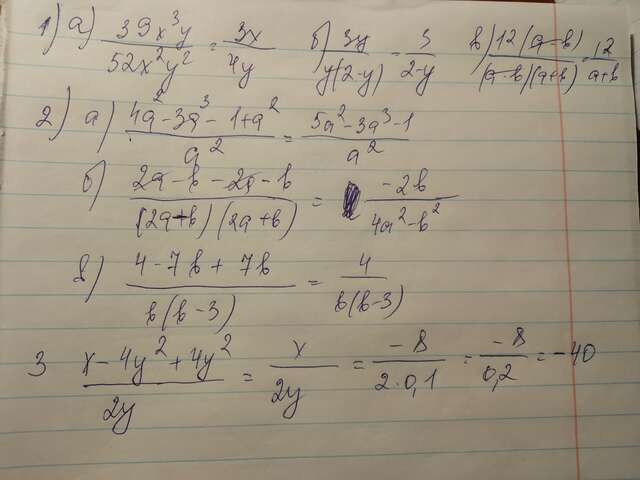 1) а) 39x³y/52x²y² = 3x/4y б) 3y/y(2-y) = 3/2-y в) 12(a-b)/(a-b)(a+b) = 12/a+b
2) а) 4a²-3a³-1+a²/a² = 5a²-3a³-1/a²
б) 2a-b-2a-b/(2a-b)(2a+b) = -2b/4a²-b²
в) 4-7b+7b/b(b-3) = 4/b(b-3)
3 x-4y²+4y²/2y = x/2y = -8/2·0,1 = -8/0,2 = -40